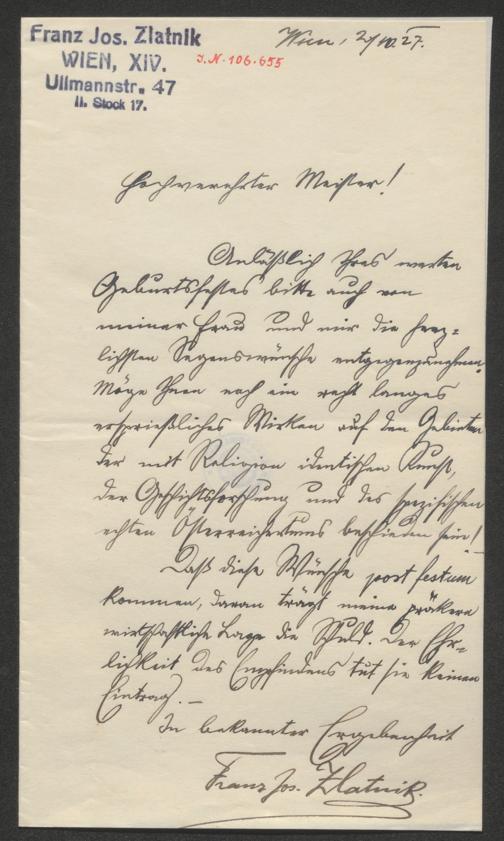 Franz Jos. Zlatnik
WIEN, XIV.
Ullmannstr. 47
II. Stock 17.
Wien, 2/IV. 27.
I.N. 106.655
Hochverehrter Meister!
Anläßlich Ihres werten
Geburtsfestes bitte auch von
meiner Frau und mir die herz=
lichsten Segenswünsche entgegenzunehmen.
Möge Ihnen noch ein recht langes
ersprießliches Wirken auf den Gebieten
der mit Religion identischen Kunst,
der Geschichtsforschung und des spezifischen
echten Österreichertums beschieden sein!
Daß diese Wünsche post festum
kommen, daran trägt meine prekäre
wirtschaftliche Lage die Schuld. Der Ehr=
lichkeit des Empfindens tut sie keinen
Eintrag. –
In bekannter Ergebenheit
Franz Jos. Zlatnik.